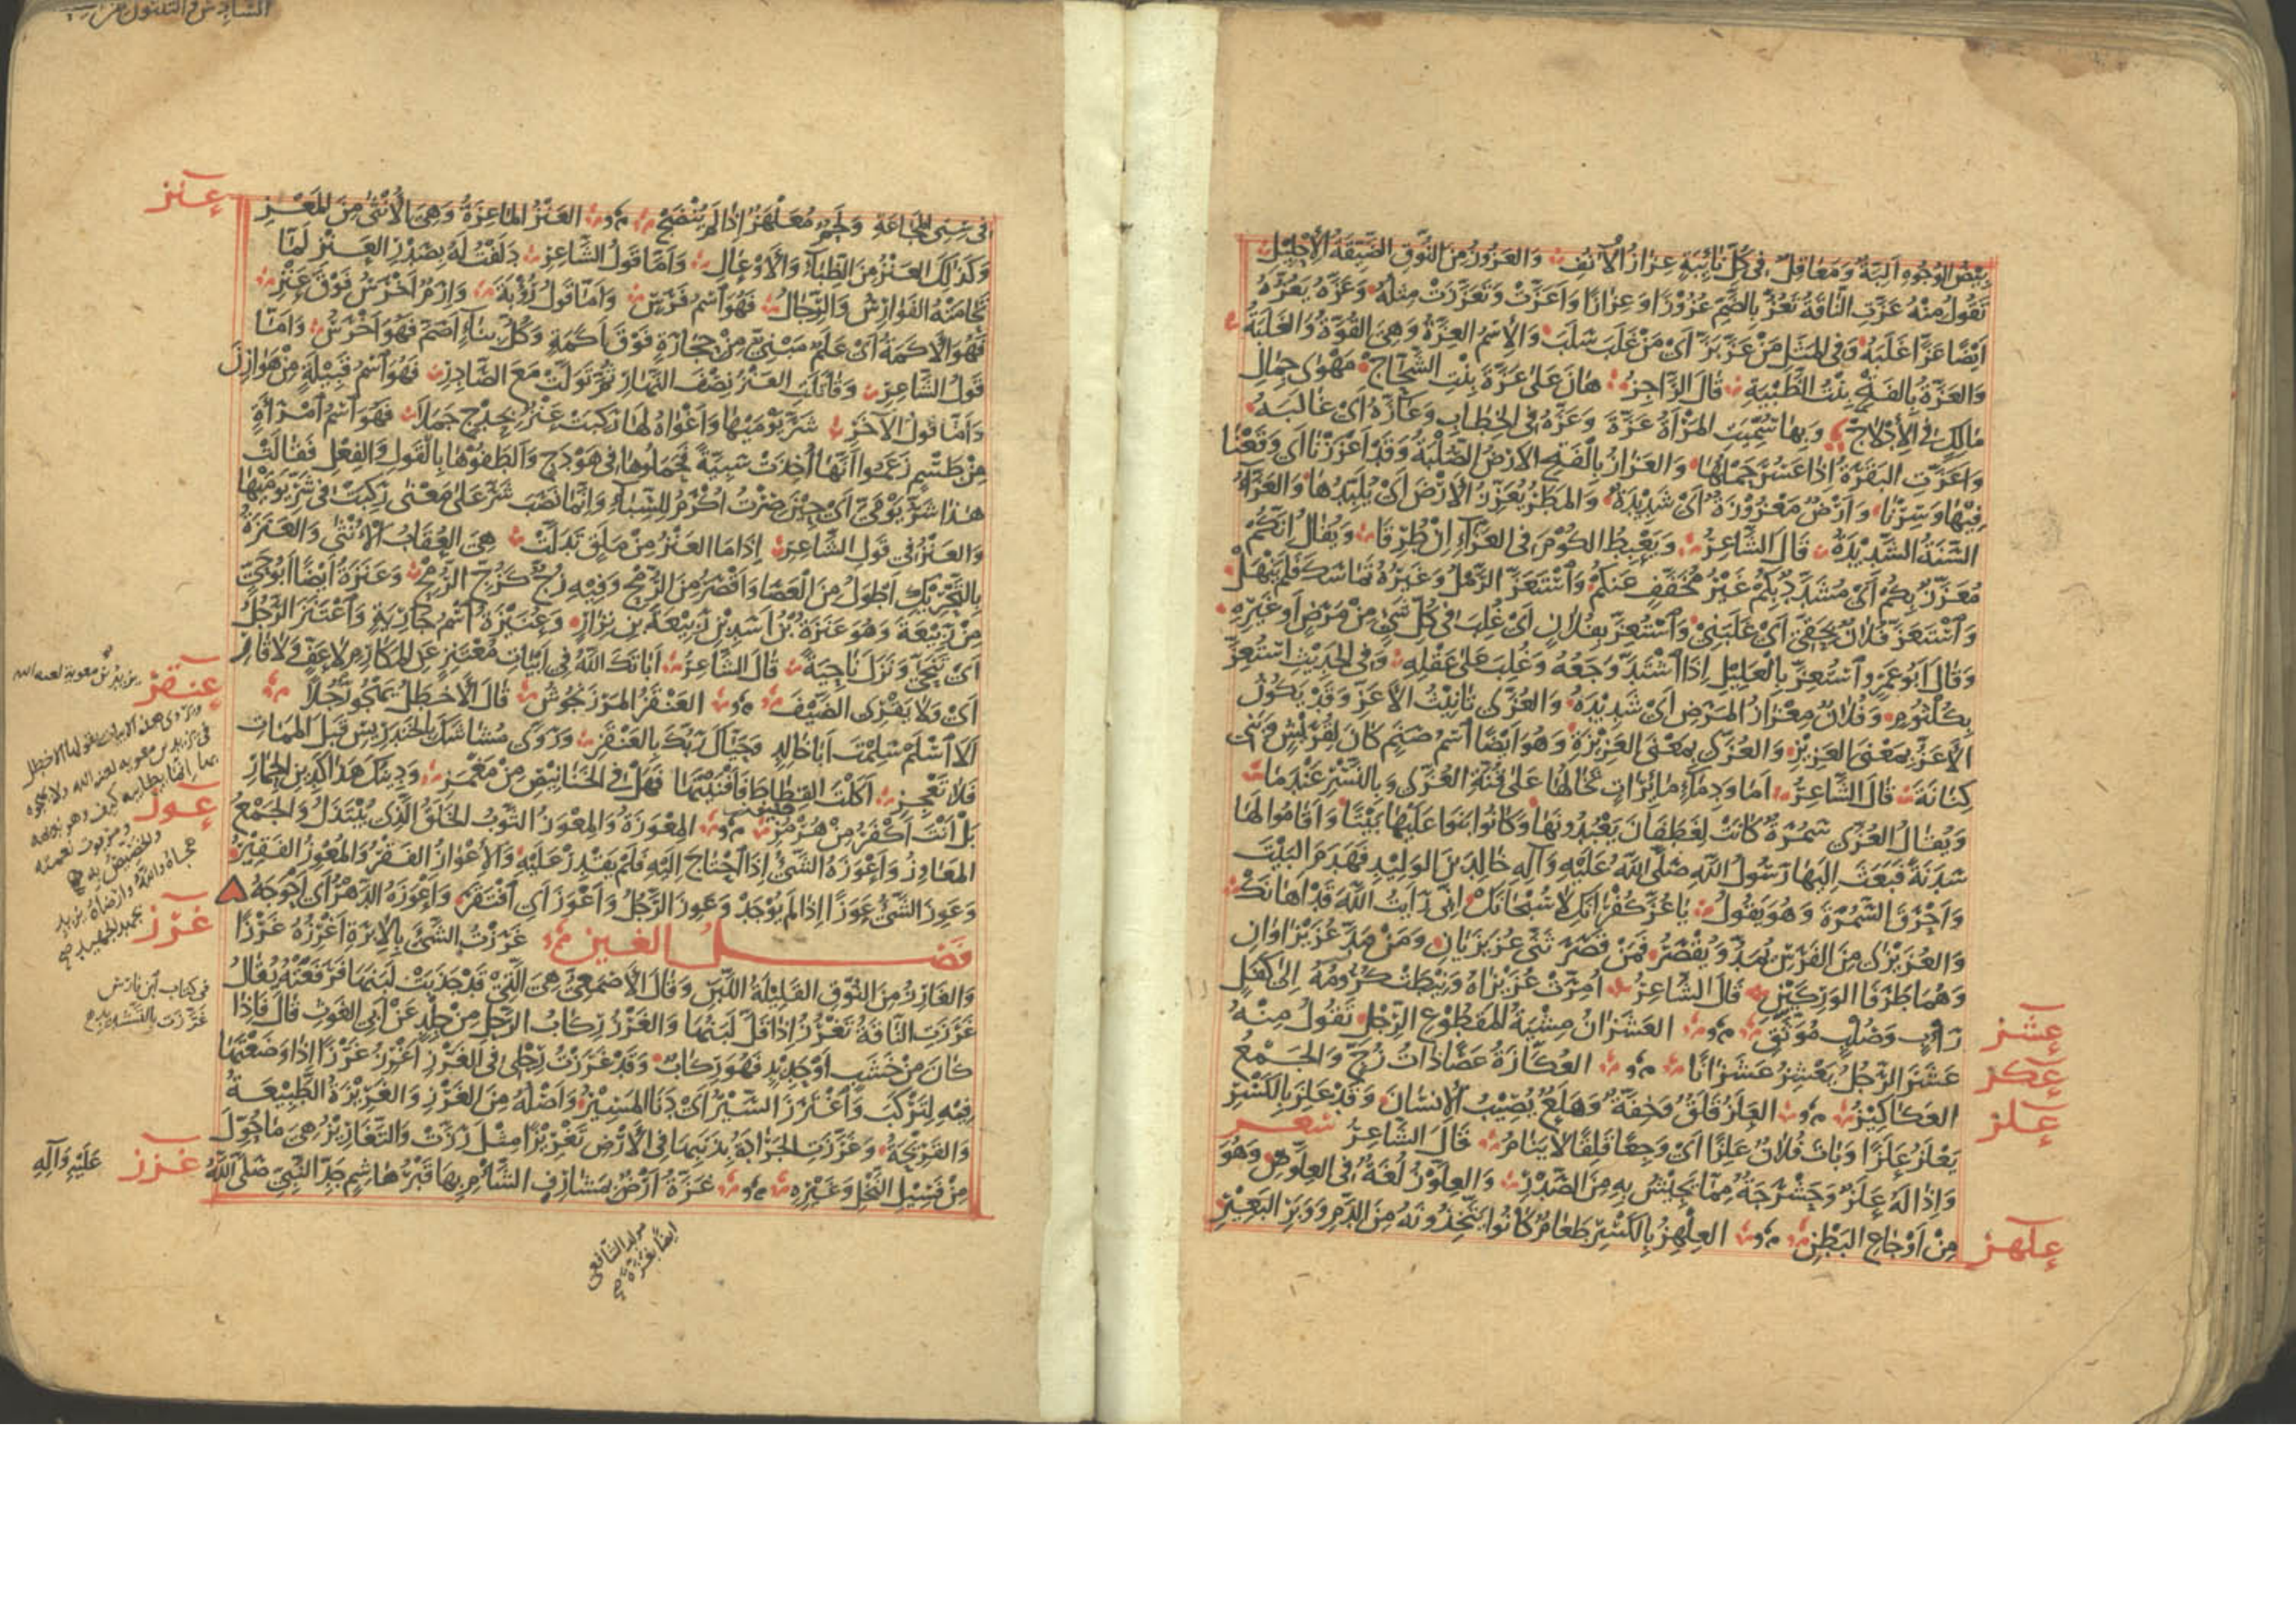 بيض الوجوه البة ومعاقل في كل نائبة عزاز الآنف والعزوز من النوق الضيقة الإحليل
تقول منه عزت الناقة تعز بالضم عزوزا وعزازا وأعزت وتعززت مثله وعزه يعزه
أيضا عزا غلبه وفي المثل من عز بز أي من غلب سلب والاسم العزة وهي القوة والغلبة
والعزة بالفتح بنت الظبية قال الراجز هان على عزة بنت الشحاج مهوى جمال
مالك في الأدلاج وبها سميت المرأة عزة وعزه في الخطاب وعازه أي غالبه
وأعزت البقرة إذا عسر حملها والعزاز بالفتح الارض الصلبة وقد أعززنا أي وقعنا
فيها وسرنا وأرض معزوزة أي شديدة والمطر يعزز الأرض أي يلبدها والعزاء
السنة الشديدة قال الشاعر ويعبط الكوم في العزاء إن طرقا ويقال إنكم
معزز بكم أي مشدد بكم غير مخفف عنكم واستعز الرمل وغيره تماسك فلم ينهل
واستعز فلان بحقي أي غلبني واستعز بفلان أي غلب في كل شيء من مرض أو غيره
وقال أبو عمرو استعز بالعليل إذا اشتد وجعه وغلب على عقله وفي الحديث استعز
بكلثوم وفلان معزاز المرض أي شديدة والعزى تأنيث الأعز وقد يكون
الأعز بمعنى العزيز والعزى بمعنى العزيزة وهو أيضا اسم صنم كان لقريش وبني
كنانة قال الشاعر أما ودماء مائرات تخالها على قنة العزى وبالنسر عندما
ويقال العزى سمرة كانت لغطفان يعبدونها وكانوا بنوا عليها بيتا وأقاموا لها
سدنة فبعث إليها رسول الله صلى الله عليه وآله خالد بن الوليد فهدم البيت
وأحرق السمرة وهو يقول يا عز كفرانك لا سبحانك إني رأيت الله قد أهانك
والعزيزى من الفرس يمد ويقصر فمن قصر ثنى عزيزيان ومن مد عزيزاوان
وهما طرفا الوركين قال الشاعر أمرت عزيزاه ونيطت كرومه إلى كفل
راب وصلب موثق العشزان مشية المقطوع الرجل تقول منه
عشز الرجل يعشز عشزانا العكازة عصا ذات زج والجمع
العكاكيز العلز قلق وخفة وهلع يصيب الإنسان وقد علز بالكسر
يعلز علزا وبات فلان علزا أي وجعا قلقا لا ينام قال الشاعر شعر
وإذا له علز وحشرجة مما يجيش به من الصدر والعلوز لغة في العلوص وهو
من أوجاع البطن العلهز بالكسر طعام كانوا يتخذونه من الدم ووبر البعير
عشز
عكز
علز
علهز
في سني المجاعة ولحم معلهز إذا لم ينضج العنز الماعزة وهي الأنثى من المعز
وكذلك العنز من الظباء والأوعال وأما قول الشاعر دلفت له بصدر العنز لما
تحامته الفوارس والرجال فهو اسم فرس وأما قول رؤبة وإرم أخرس فوق عنز
فهو الأكمة أي علم مبني من حجارة فوق أكمة وكل بناء أصم فهو أخرس وأما
قول الشاعر وقاتلت العنز نصف النهار ثم تولت مع الصادر فهو اسم قبيلة من هوازن
وأما قول الآخر شر يوميها وأغواه لها ركبت عنز بحدج جملا فهو اسم امرأة
من طسم زعموا أنها أخذت سبية فحملوها في هودج وألطفوها بالقول والفعل فقالت
هذا شر يومي أي حين صرت أكرم للسباء وإنما نصب شر على معنى ركبت في شر يوميها
والعنز في قول الشاعر إذا ما العنز من ملق تدلت هي العقاب الأنثى والعنزة
بالتحريك أطول من العصا وأقصر من الرمح وفيه زج كزج الرمح وعنزة أيضا أبو حي
من ربيعة وهو عنزة بن أسد بن ربيعة بن نزار وعنيزة اسم جارية واعتنز الرجل
أي تنحى ونزل ناحية قال الشاعر أباتك الله في أبيات معتنز عن المكارم لا عف ولا قار
أي ولا يقري الضيف العنقز المرزنجوش قال الأخطل يهجو رجلا
ألا اسلم سلمت أبا خالد وحياك ربك بالعنقز وروى مشاشك بالخندريس قبل الممات
فلا تعجز أكلت القطاط فأفنيتها فهل في الخنانيص من مغمز ودينك هذا كدين الحمار
بل أنت أكفر من هرمز المعوزة والمعوز الثوب الخلق الذي يبتذل والجمع
المعاوز وأعوزه الشيء إذا احتاج إليه فلم يقدر عليه والإعواز الفقر والمعوز الفقير
وعوز الشيء عوزا إذا لم يوجد وعوز الرجل وأعوز أي افتقر وأعوزه الدهر أي أحوجه
فصل الغين غرزت الشيء بالإبرة أغرزه غرزا
والغارز من النوق القليلة اللبن وقال الأصمعي هي التي قد جذبت لبنها فرفعته يقال
غرزت الناقة تغرز إذا قل لبنها والغرز ركاب الرحل من جلد عن أبي الغوث قال فإذا
كان من خشب أو حديد فهو ركاب وقد غرزت رجلي في الغرز أغرز غرزا إذا وضعتها
فيه لتركب واغترز السير أي دنا المسير وأصله من الغرز والغريزة الطبيعة
والقريحة وغرزت الجرادة بذنبها في الأرض تغريزا مثل رزت والتغاريز هي ما حول
من فسيل النخل وغيره غزة أرض بمشارف الشام بها قبر هاشم جد النبي صلى الله
عليه وآله
عنز
عنقز
عوز
غرز
غزز
في كتاب ابن فارس
غرزت بالتشديد